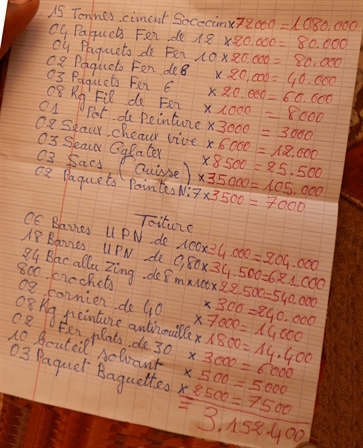 15 Tonnes ciment Sococim x 72000 = 1.080.000
04 Paquets Fer de 12 x 20.000 = 80.000
04 Paquets de Fer 10 x 20.000 = 80.000
02 Paquets Fer de 8 x 20.000 = 40.000
03 Paquets Fer 6 x 20.000 = 60.000
08 Kg Fil de Fer x 1000 = 8000
01 Pot de Peinture x 3000 = 3000
02 Seaux cheaux vive x 6000 = 12.000
03 Seaux Cglatex x 8500 = 25.500
03 Sacs (Cuisse) x 35000 = 105.000
02 Paquets Pointes N:7 x 3500 = 7000
Toiture
06 Barres UPN de 100 x 34.000 = 204.000
18 Barres UPN de 0,80 x 34.500 = 621.000
24 Bac allu Zing de 8m x 100 x 22.500 = 540.000
800 crochets x 300 = 240.000
02 cornier de 40 x 7000 = 14.000
08 Kg peinture antirouille x 1800 = 14.400
02 Fer plats de 30 x 3000 = 6000
10 Bouteil solvant x 500 = 5000
03 Paquet Baguettes x 2500 = 7500
= 3.152.400